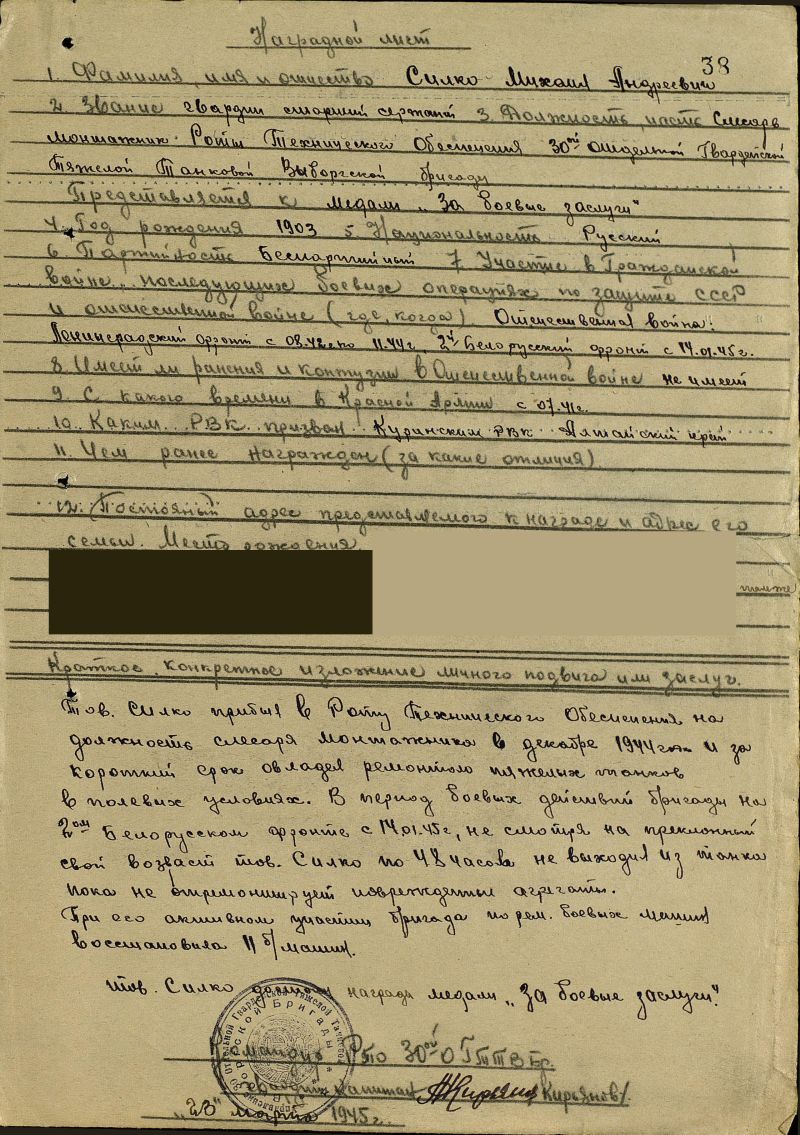 Наградной лист
38
1. Фамилия, имя и отчество Силко Михаил Андреевич
2. Звание гвардии старший сержант 3. Должность, часть Слесарь
монтажник Роты Технического Обеспечения 30ой Отдельной Гвардейской
Тяжелой Танковой Выборгской бригады
Представляется к медали „За боевые заслуги"
4. Год рождения 1903 5. Национальность Русский
6. Партийность Беспартийный 7. Участие в Гражданской
войне, последующих боевых операциях по защите СССР
и отечественной войне (где, когда) Отечественная война:
Ленинградский фронт с 08.42г по 11.44г, 2й Белорусский фронт с 14.01.45г.
8. Имеет ли ранения и контузии в Отечественной войне не имеет
9. С какого времени в Красной Армии с 07.41г.
10. Каким РВК призван Курьинским РВК Алтайский край
11. Чем ранее награжден (за какие отличия)
12. Постояный адрес представляемого к награде и адрес его
семьи. Место рождения
там же
Краткое, конкретное изложение личного подвига или заслуг.
Тов. Силко прибыл в Роту Технического Обеспечения на
должность слесаря монтажника в декабре 1944 года и за
короткий срок овладел ремонтом тяжелых танков
в полевых условиях. В период боевых действий бригады на
2ом Белорусском фронте с 14.01.45г, не смотря на преклонный
свой возраст тов. Силко по 48 часов не выходил из танка
пока не отремонтирует поврежденные агрегаты.
При его активном участии бригада по рем. боевых машин
восстановила 11 б/машин.
тов. Силко достоин награды медали „За боевые заслуги"
Командир РТО 30ой ОГТТВБр.
Гвардии капитан Кирьянов/
„23" марта 1945г.